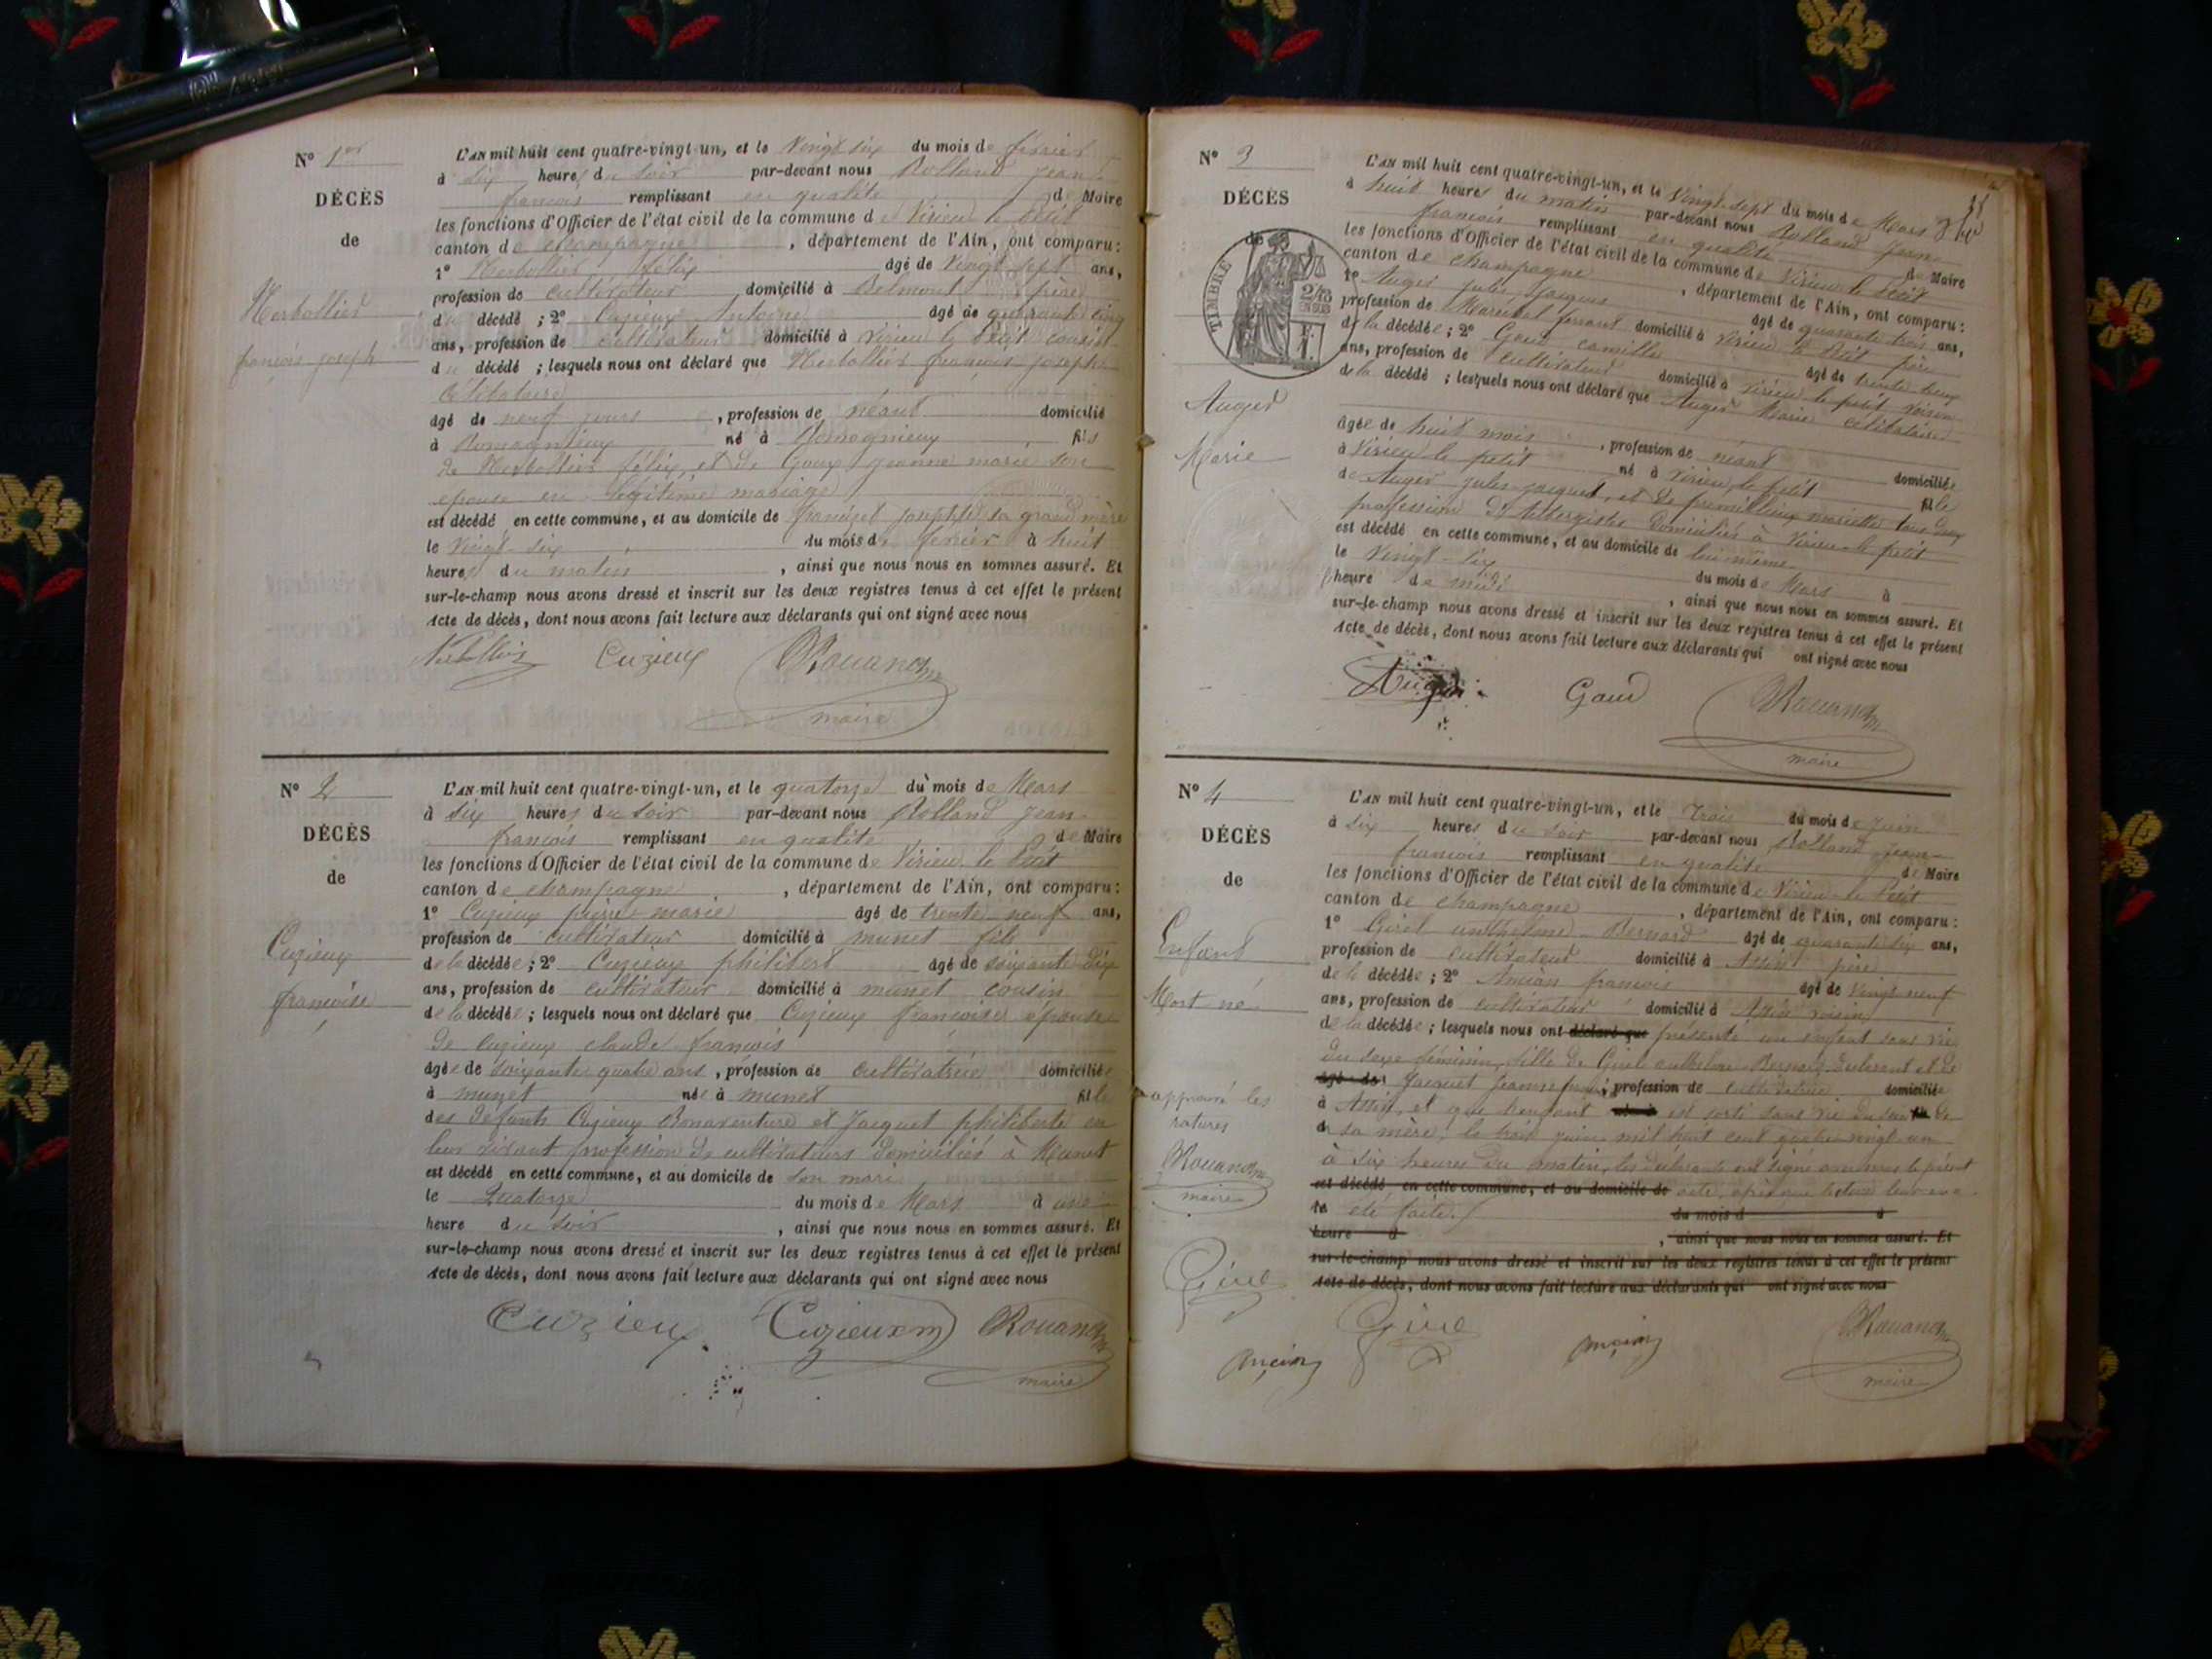 N° 1er
DÉCÈS
de
françois joseph
L'AN mil huit cent quatre-vingt-un, et le Vingt six du mois de février
à Six heures du Soir par-devant nous Rolland Jean-
françois remplissant en qualité de Maire
les fonctions d'Officier de l'état civil de la commune de Virieu le Petit
canton de champagne, département de l'Ain, ont comparu:
1° félix âgé de Vingt sept ans,
profession de cultivateur domicilié à Belmont père
du décédé; 2° Cuzieux Antoine âgé de quarante cinq
ans, profession de cultivateur domicilié à Virieu le Petit cousin
du décédé; lesquels nous ont déclaré que françois joseph
célibataire
âgé de neuf jours, profession de néant domicilié
à Romagnieux né à Romagnieux fils
de félix, et de Goux jeanne marie son
épouse en légitime mariage
est décédé en cette commune, et au domicile de sa grand mère
le Vingt-six du mois de février à huit
heures du matin, ainsi que nous nous en sommes assuré. Et
sur-le-champ nous avons dressé et inscrit sur les deux registres tenus à cet effet le présent
Acte de décès, dont nous avons fait lecture aux déclarants qui ont signé avec nous
Cuzieux
maire
N° 2
DÉCÈS
de
Cuzieux
françoise
L'AN mil huit cent quatre-vingt-un, et le quatorze du mois de Mars
à six heures du Soir par-devant nous Rolland Jean-
françois remplissant en qualité de Maire
les fonctions d'Officier de l'état civil de la commune de Virieu le Petit
canton de champagne, département de l'Ain, ont comparu:
1° Cuzieux pierre marie âgé de trente neuf ans,
profession de cultivateur domicilié à munet fils
de la décédée; 2° Cuzieux philibert âgé de soixante dix
ans, profession de cultivateur domicilié à munet cousin
de la décédée; lesquels nous ont déclaré que Cuzieux françoise épouse
de Cuzieux claude françois
âgée de soixante quatre ans, profession de cultivatrice domiciliée
à munet née à munet fille
des défunts Cuzieux Bonaventure et Jacquet philiberte en
leur vivant profession de cultivateurs domiciliés à Munet
est décédé en cette commune, et au domicile de son mari
le Quatorze du mois de Mars à une
heure du Soir, ainsi que nous nous en sommes assuré. Et
sur-le-champ nous avons dressé et inscrit sur les deux registres tenus à cet effet le présent
Acte de décès, dont nous avons fait lecture aux déclarants qui ont signé avec nous
Cuzieux Cuzieux
maire
N° 3
DÉCÈS
de
TIMBRE
Auger
Marie
L'AN mil huit cent quatre-vingt-un, et le Vingt-sept du mois de Mars
à huit heures du matin par-devant nous Rolland Jean-
françois remplissant en qualité de Maire
les fonctions d'Officier de l'état civil de la commune de Virieu le Petit
canton de champagne, département de l'Ain, ont comparu:
1° Auger jules jacques âgé de quarante trois ans,
profession de Maréchal ferrant domicilié à Virieu le Petit père
de la décédée; 2° camille âgé de trente deux
ans, profession de cultivateur domicilié à Virieu le petit voisin
de la décédé; lesquels nous ont déclaré que Auger Marie célibataire
âgée de huit mois, profession de néant domiciliée
à Virieu le petit né à Virieu le petit fille
de Auger jules jacques, et de tous deux
profession d'Aubergistes domiciliés à Virieu le petit
est décédé en cette commune, et au domicile de lui-même
le Vingt-six du mois de Mars à
heure de midi, ainsi que nous nous en sommes assuré. Et
sur-le-champ nous avons dressé et inscrit sur les deux registres tenus à cet effet le présent
Acte de décès, dont nous avons fait lecture aux déclarants qui ont signé avec nous
maire
N° 4
DÉCÈS
de
Enfant
Mort né
approuvé les
ratures
maire
L'AN mil huit cent quatre-vingt-un, et le Trois du mois de juin
à six heures du Soir par-devant nous Rolland Jean-
françois remplissant en qualité de Maire
les fonctions d'Officier de l'état civil de la commune de Virieu le Petit
canton de champagne, département de l'Ain, ont comparu:
1° anthelme Bernard âgé de quarante six ans,
profession de cultivateur domicilié à Assin père
de la décédée; 2° françois âgé de Vingt neuf
ans, profession de cultivateur domicilié à Assin voisin
de la décédée; lesquels nous ont déclaré que présenté un enfant sans vie
du sexe féminin, fille de anthelme Bernard déclarant et de
âgé de Jacquet Jeanne profession de cultivatrice domiciliée
à Assin, et que l'enfant est sorti sans vie du sein de
sa mère, le trois juin mil huit cent quatre vingt un
à six heures du matin, les déclarants ont signé avec nous le présent
est décédé en cette commune, et au domicile de acte, après que lecture leur en a
le été faite. du mois d à
heure d, ainsi que nous nous en sommes assuré. Et
sur-le-champ nous avons dressé et inscrit sur les deux registres tenus à cet effet le présent
Acte de décès, dont nous avons fait lecture aux déclarants qui ont signé avec nous
maire